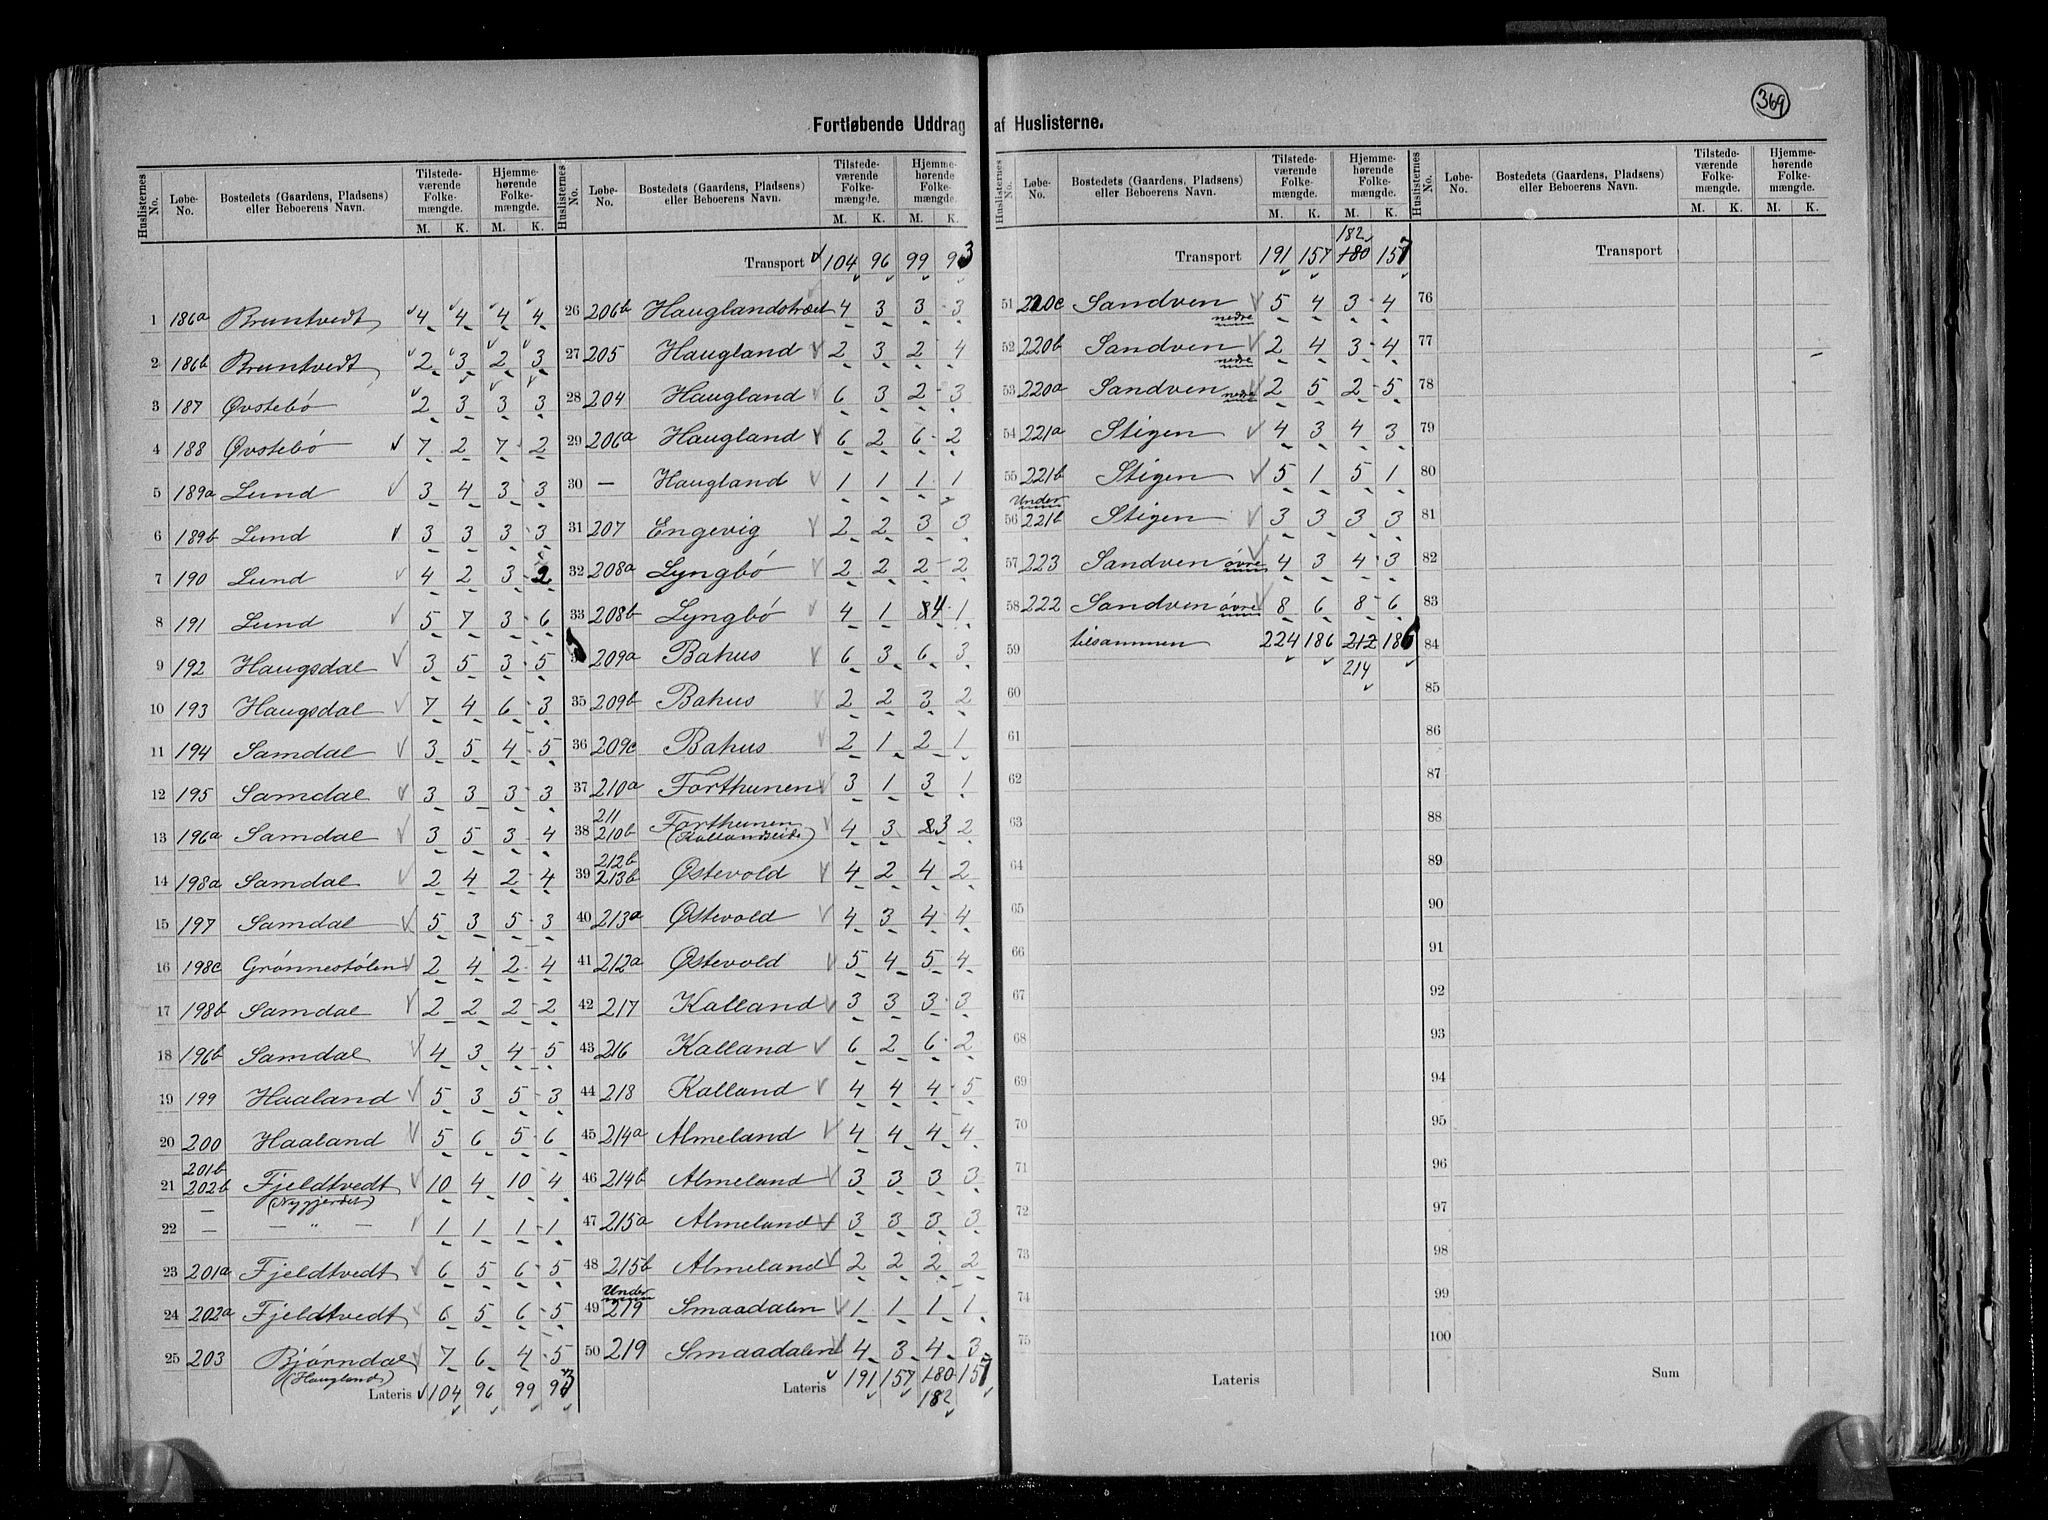 369
Fortløbende Uddrag af Huslisterne.
Huslisternes No. Løbe-No. Bostedets (Gaardens, Pladsens) eller Beboerens Navn. Tilstedeværende Folkemængde. M. K. Hjemmehørende Folkemængde. M. K.
1 186a Bruntvedt 4 4 4 4
2 186b Bruntvedt 2 3 2 3
3 187 Øvstebø 2 3 3 3
4 188 Øvstebø 7 2 7 2
5 189a Lund 3 4 3 3
6 189b Lund 3 3 3 3
7 190 Lund 4 2 3 2
8 191 Lund 5 7 3 6
9 192 Haugsdal 3 5 3 5
10 193 Haugsdal 7 4 6 3
11 194 Samdal 3 5 4 5
12 195 Samdal 3 3 3 3
13 196a Samdal 3 5 3 4
14 198a Samdal 2 4 2 4
15 197 Samdal 5 3 5 3
16 198c Grønnestølen 2 4 2 4
17 198b Samdal 2 2 2 2
18 196b Samdal 4 3 4 5
19 199 Haaland 5 3 5 3
20 200 Haaland 5 6 5 6
201b
21 202b Fjeldtvedt 10 4 10 4
(Nygjerdet)
22 — — " — 1 1 1 1
23 201a Fjeldtvedt 6 5 6 5
24 202a Fjeldtvedt 6 5 6 5
25 203 Bjørndal 7 6 4 5
(Haugland)
Lateris 104 96 99 93
Huslisternes No. Løbe-No. Bostedets (Gaardens, Pladsens) eller Beboerens Navn. Tilstedeværende Folkemængde. M. K. Hjemmehørende Folkemængde. M. K.
Transport 104 96 99 93
26 206b Hauglandstræet 4 3 3 3
27 205 Haugland 2 3 2 4
28 204 Haugland 6 3 2 3
29 206a Haugland 6 2 6 2
30 — Haugland 1 1 1 1
31 207 Engevig 2 2 3 3
32 208a Lyngbø 2 2 2 2
33 208b Lyngbø 4 1 4 1
209a Bahus 6 3 6 3
35 209b Bahus 2 2 3 2
36 209c Bahus 2 1 2 1
37 210a Forthunen 3 1 3 1
211
38 210b Forthunen 4 3 3 2
(Kallandseide)
212b
39 213b Østevold 4 2 4 2
40 213a Østevold 4 3 4 4
41 212a Østevold 5 4 5 4
42 217 Kalland 3 3 3 3
43 216 Kalland 6 2 6 2
44 218 Kalland 4 4 4 5
45 214a Almeland 4 4 4 4
46 214b Almeland 3 3 3 3
47 215a Almeland 3 3 3 3
48 215b Almeland 2 2 2 2
Under
49 219 Smaadalen 1 1 1 1
50 219 Smaadalen 4 3 4 3
Lateris 191 157 180 157
182
Huslisternes No. Løbe-No. Bostedets (Gaardens, Pladsens) eller Beboerens Navn. Tilstedeværende Folkemængde. M. K. Hjemmehørende Folkemængde. M. K.
182
Transport 191 157 180 157
51 220c Sandven nedre 5 4 3 4
52 220b Sandven nedre 2 4 3 4
53 220a Sandven nedre 2 5 2 5
54 221a Stigen 4 3 4 3
55 221b Stigen 5 1 5 1
Under
56 221b Stigen 3 3 3 3
57 223 Sandven øvre 4 3 4 3
58 222 Sandven øvre 8 6 8 6
59 tilsammen 224 186 212 186
214
60
61
62
63
64
65
66
67
68
69
70
71
72
73
74
75
Lateris
Huslisternes No. Løbe-No. Bostedets (Gaardens, Pladsens) eller Beboerens Navn. Tilstedeværende Folkemængde. M. K. Hjemmehørende Folkemængde. M. K.
Transport
76
77
78
79
80
81
82
83
84
85
86
87
88
89
90
91
92
93
94
95
96
97
98
99
100
Sum